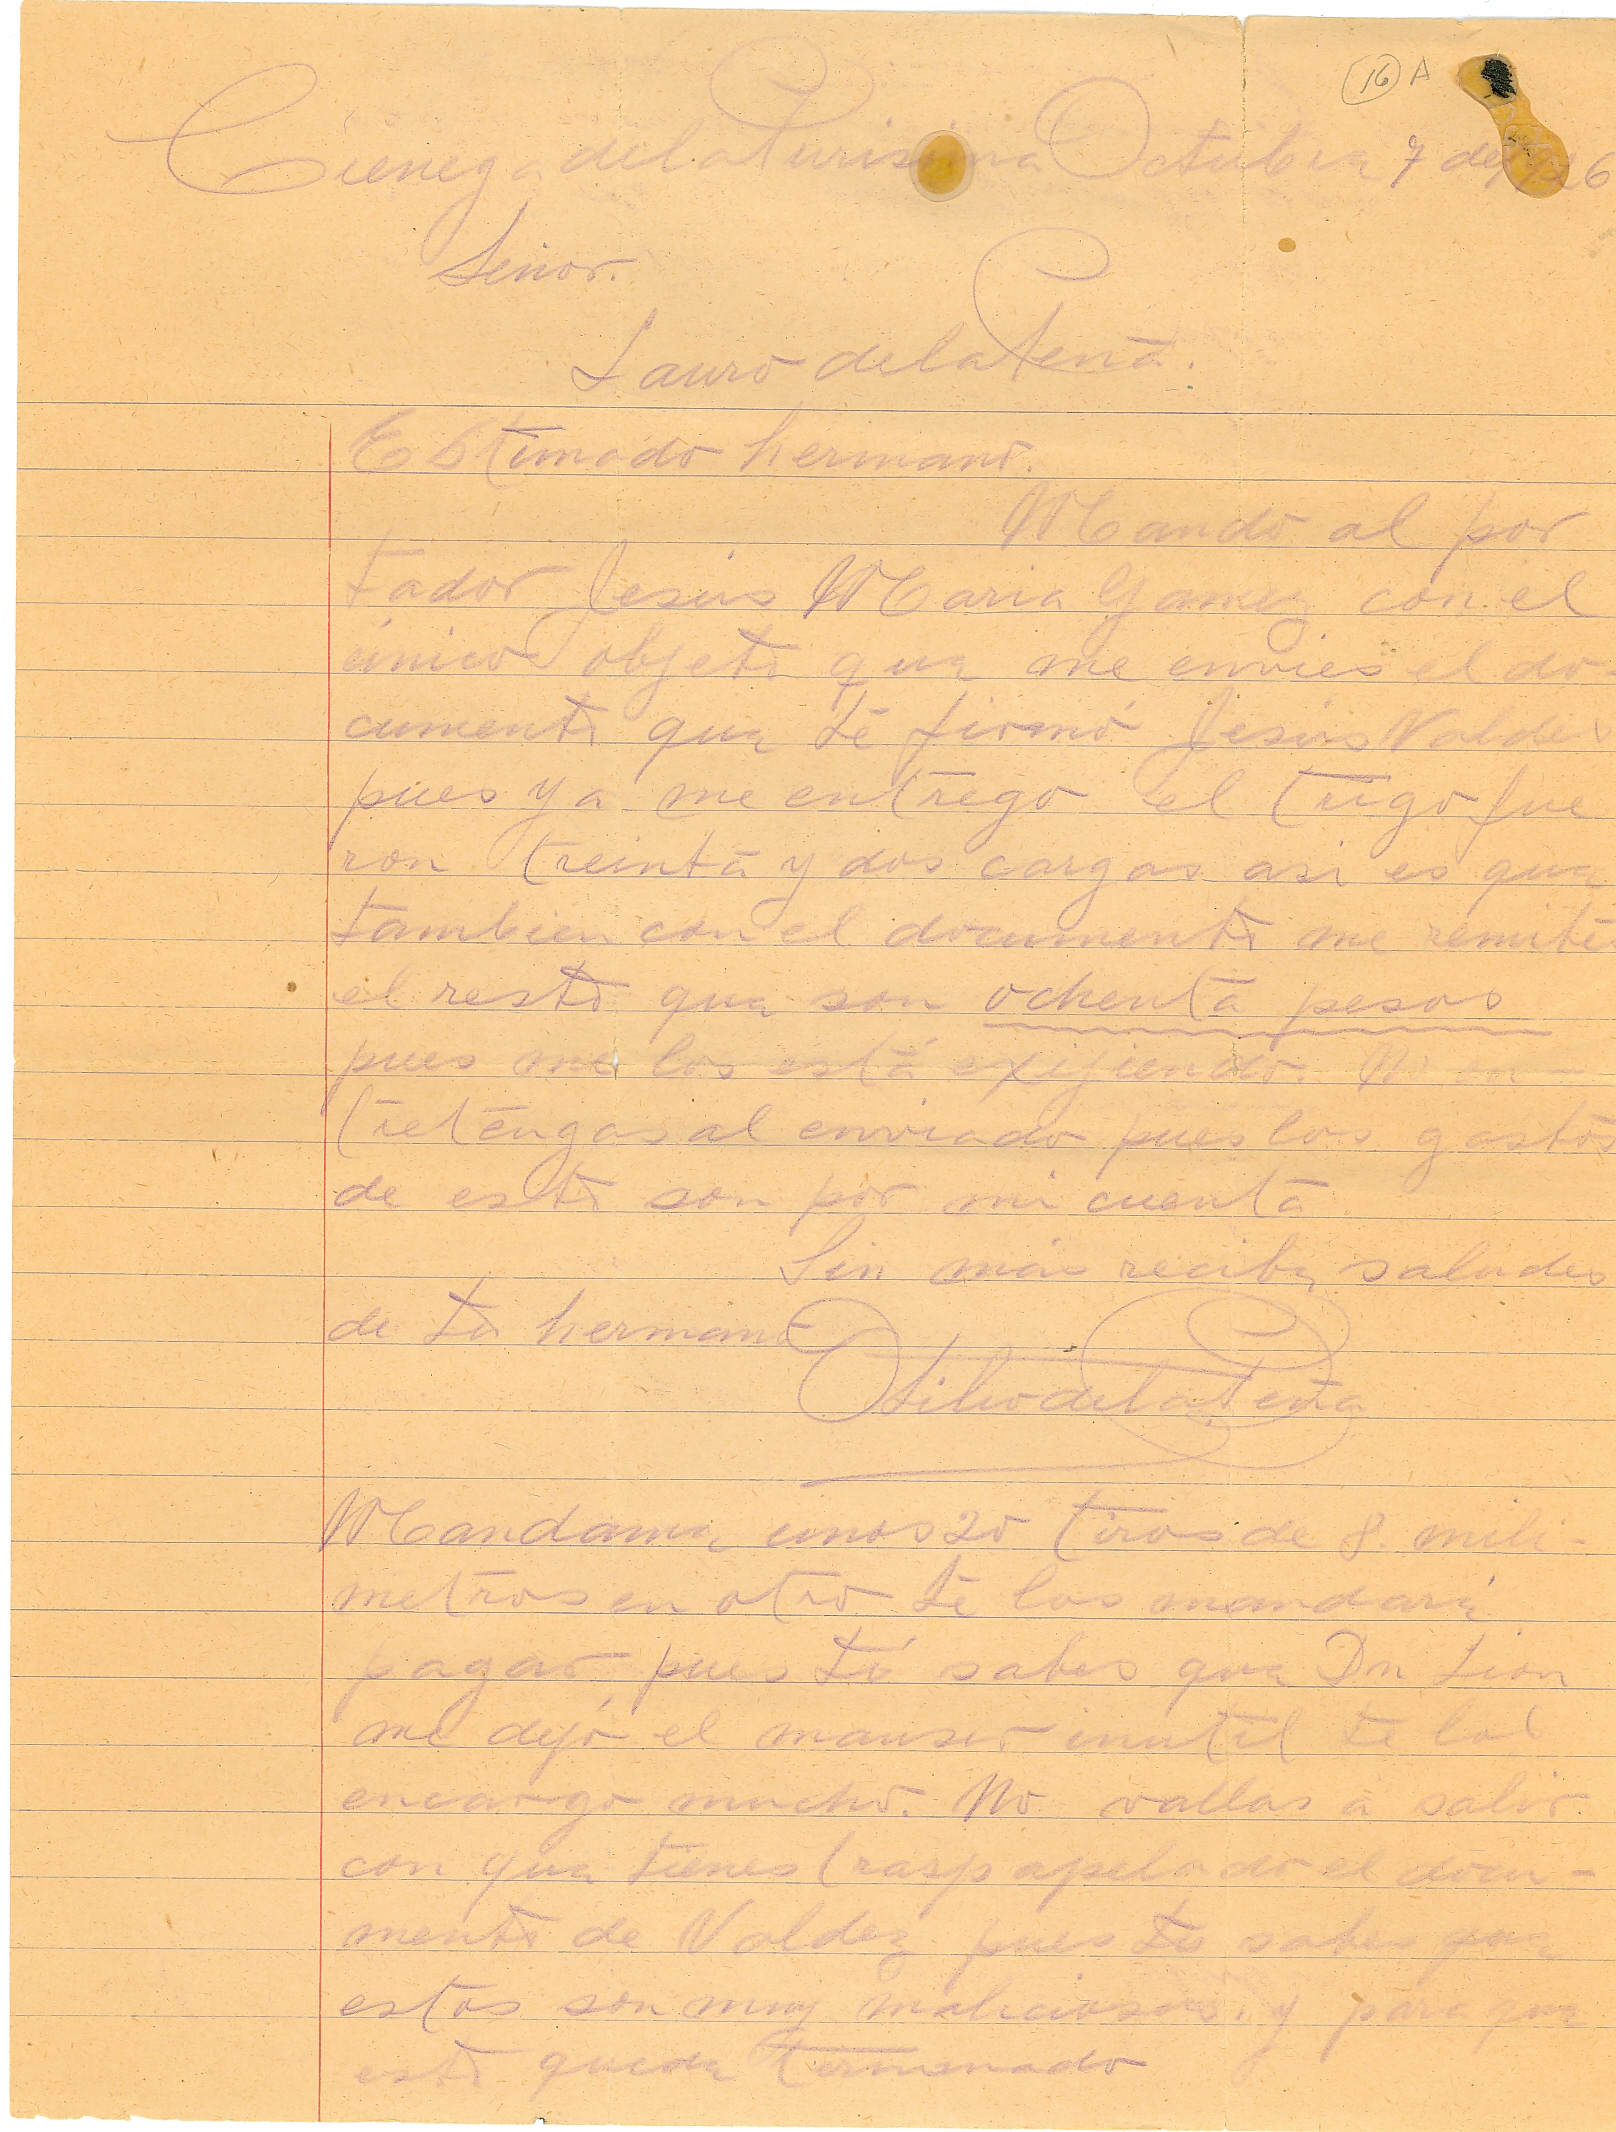 16 A
Cienega de la Purisima Octubre 7 de 1926
Señor.
Lauro de la Peña.
Estimado hermano.
Mando al por
tador Jesús Maria Gamez con el
único objeto que me envies el do-
cumento que te firmó Jesús Valdes
pues ya me entrego el trigo fue
ron treinta y dos cargas asi es que
tambien con el documento me remites
el resto que son ochenta pesos
pues me los está exijiendo. No en-
tretengas al enviado pues los gastos
de esto son por mi cuenta
Sin más recibe saludes
de tu hermano
de la Peña
Mandame unos 20 tiros de 8. mili-
metros en otro te los mandaré
pagar pues tú sabes que Dn
me dejó el mauser inutil te los
encargo mucho. No vallas a salir
con que tienes traspapelado el docu-
mento de Valdez pues tu sabes que
estos son muy maliciosos. y para que
esto quede terminado